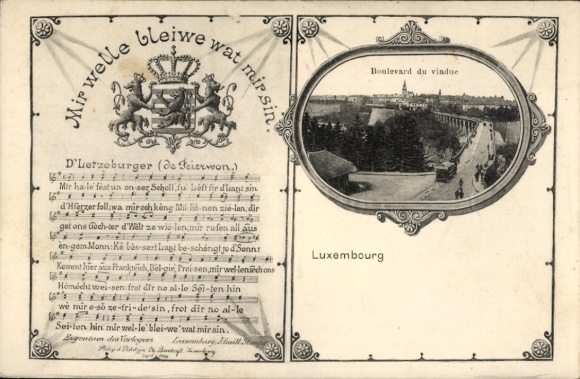 Mir welle bleiwe wat mir sin.
D'Letzeburger (de Feierwon.)
Mir ha-le' fest un on-ser Scholl, fu Le'ft fir d'Land sin
d'Hierzer foll; wa mir och keng Mil-lio-nen zie-len, dir
get ons dach ter d'Welt ze wie-len, mir rufen all aus
en-gem Monn: Ke bes-sert Land be-schengt jo d'Sonn!
Kommt hier aus Frankreich, Bel-gie', Prei-sen, mir wel-len iech ons
Hemecht wei-sen: frot dir no al-le Sei-ten hin
we' mir e-so ze-fri-de' sin, frot dir no al-le
Sei-ten hin mir wel-le' blei-we' wat mir sin.
Eigentum des Verlegers
Luxemburg,
Boulevard du viaduc
Luxembourg